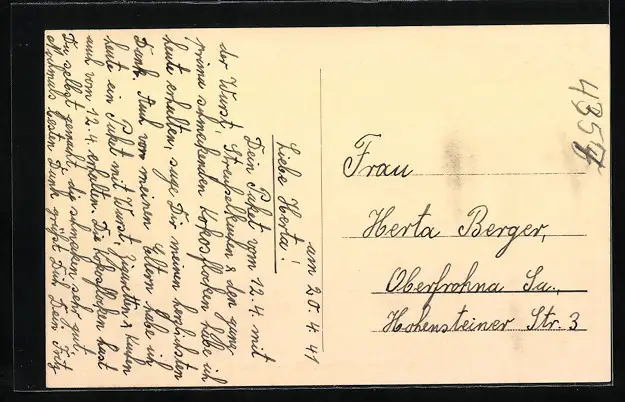 am 20.4.41
Liebe Herta!
Dein Paket vom 12.4. mit
der Wurst, Streuselkuchen & den ganz
prima schmeckenden Kokosflocken habe ich
heute erhalten, sage Dir meinen herzlichsten
Dank. Auch von meinen Eltern habe ich
heute ein Paket mit Wurst, Zigaretten & Kuchen
auch vom 12.4. erhalten. Die Kokosflocken hast
Du selbst gemacht, die schmecken sehr gut.
Nochmals besten Dank grüßt Dich Dein Fritz
Frau
Herta Berger,
Oberfrohna Sa.,
Hohensteiner Str. 3